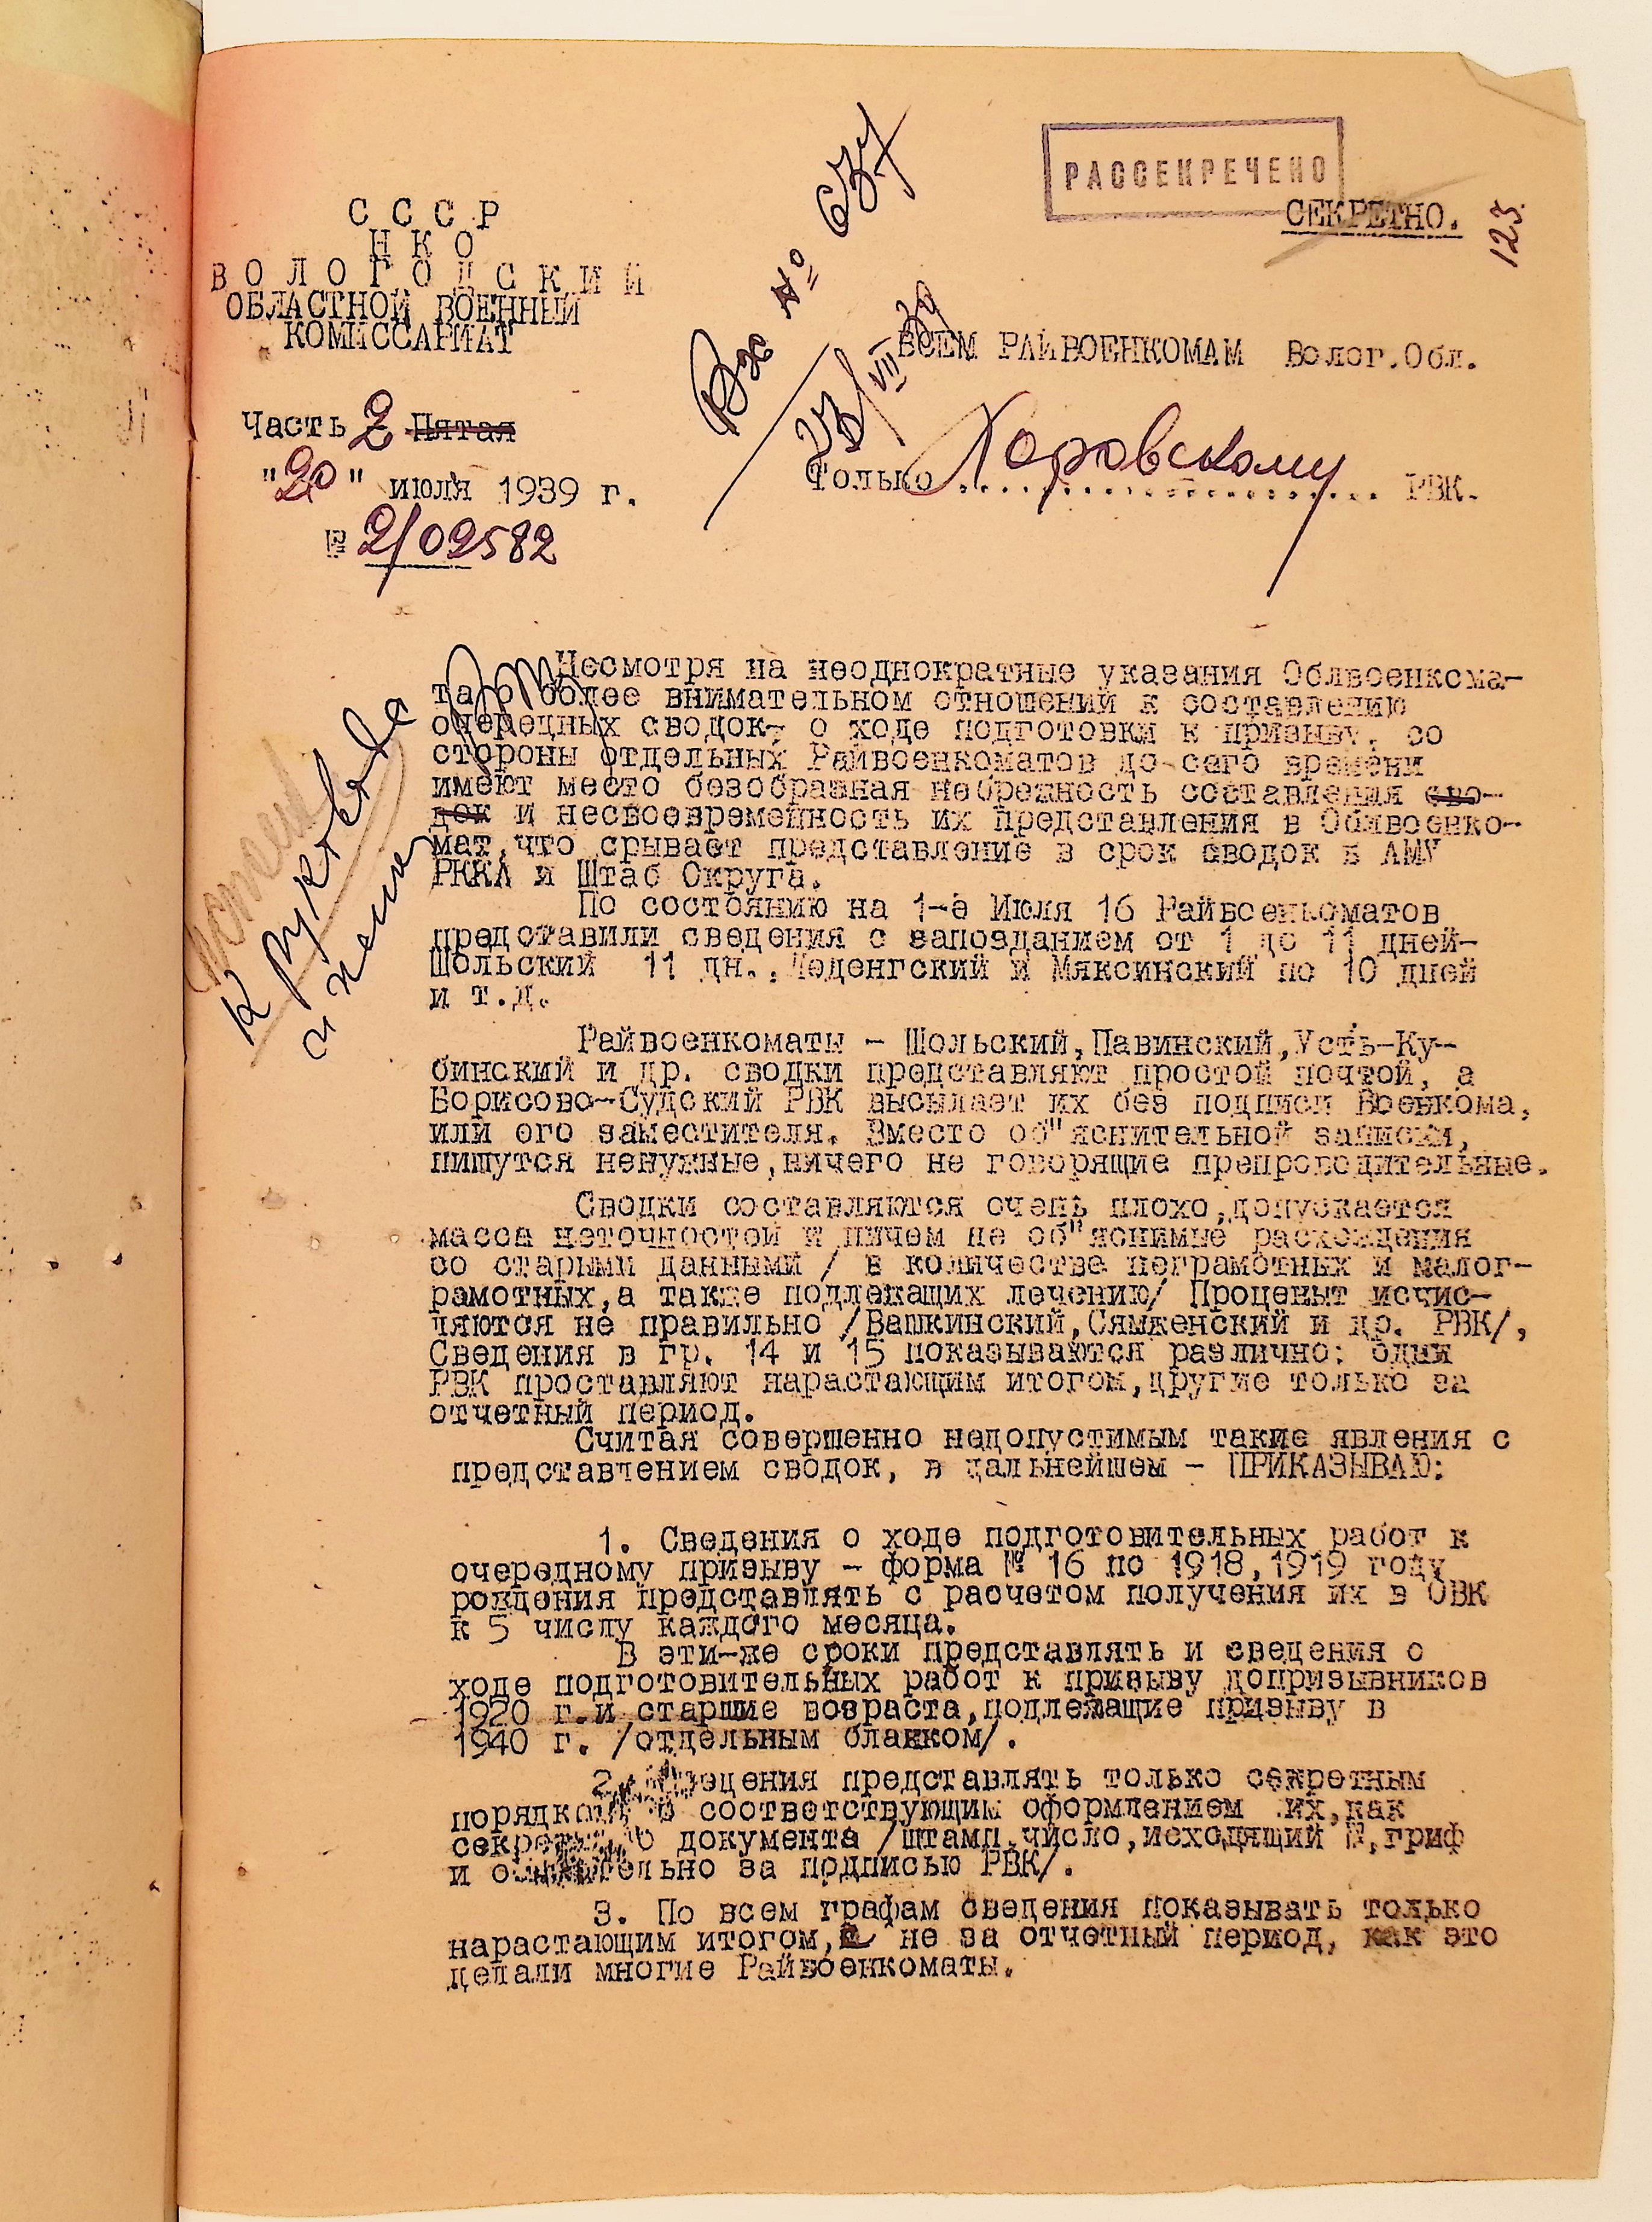 РАССЕКРЕЧЕНО
СЕКРЕТНО.
123.
С С С Р
Н К О
В О Л О Г О Д С К И Й
ОБЛАСТНОЙ ВОЕННЫЙ
КОМИССАРИАТ
Вх № 637
23/VII 39
ВСЕМ РАЙВОЕНКОМАМ Волог.Обл.
Часть 2 Пятая
"20" июля 1939 г.
№ 2/02582
Только Харовскому РВК.
Несмотря на неоднократные указания Облвоенкома-
та о более внимательном отношений к составлению
очередных сводок, о ходе подготовки к призыву, со
стороны отдельных Райвоенкоматов до сего времени
имеют место безобразная небрежность составления сво-
док и несвоевременность их представления в Облвоенко-
мат,что срывает представление в срок сводок в АМУ
РККА и Штаб Округа.
По состоянию на 1-е Июля 16 Райвоенкоматов
представили сведения с запозданием от 1 до 11 дней-
Шольский 11 дн., Леденгский и Мяксинский по 10 дней
и т.д.
Райвоенкоматы - Шольский,Павинский,Усть-Ку-
бинский и др. сводки представляют простой почтой, а
Борисово-Судский РВК высылает их без подписи Военкома,
или его заместителя. Вместо об"яснительной записки,
пишутся ненужные,ничего не говорящие препроводительные.
Сводки составляются очень плохо,допускается
масса неточностей и ничем не об"яснимые расхождения
со старыми данными / в количестве неграмотных и малог-
рамотных,а также подлежащих лечению/ Проценыт исчис-
ляются не правильно /Вашкинский,Сямженский и др. РВК/,
Сведения в гр. 14 и 15 показываются различно: одни
РВК проставляют нарастающим итогом,другие только за
отчетный период.
Считая совершенно недопустимым такие явления с
представлением сводок, в дальнейшем - ПРИКАЗЫВАЮ:
1. Сведения о ходе подготовительных работ к
очередному призыву - форма № 16 по 1918,1919 году
рождения представлять с расчетом получения их в ОВК
к 5 числу каждого месяца.
В эти-же сроки представлять и сведения о
ходе подготовительных работ к призыву допризывников
1920 г.и старшие возраста,подлежащие призыву в
1940 г. /отдельным бланком/.
2. Сведения представлять только секретным
порядком с соответствующим оформлением их,как
секретного документа /штамп,число,исходящий №,гриф
и обязательно за подписью РВК/.
3. По всем графам сведения показывать только
нарастающим итогом,а не за отчетный период, как это
делали многие Райвоенкоматы.